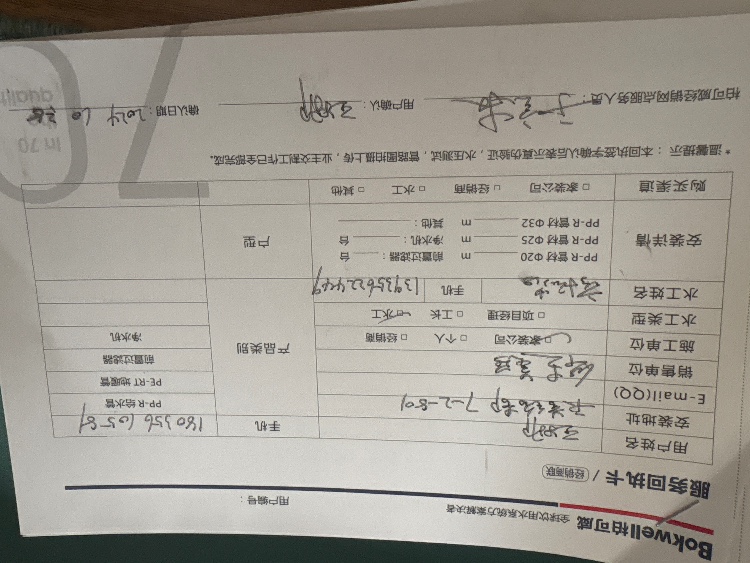 Bokwell柏可威 全球饮用水系统方案解决者 用户编号：
服务回执卡 / 经销商联
用户姓名 手机 180356
安装地址 7-2-801 产品类别 PP-R 给水管
E-mail(QQ) PE-RT 地暖管
销售单位 前置过滤器
施工单位 □ 家装公司 □ 个人 □ 经销商 净水机
水工类型 □ 项目经理 □ 工长 □ 水工
水工姓名 手机 13935622449
安装详情 PP-R 管材 Φ20 m 前置过滤器： 台 户型
PP-R 管材 Φ25 m 净水机： 台
PP-R 管材 Φ32 m 其他：
购买渠道 □ 家装公司 □ 经销商 □ 水工 □ 其他
* 温馨提示：本回执签字确认后表示真伪验证，水压测试，管路图拍摄上传，业主交割工作已全部完成。
柏可威经销网点服务人员： 用户确认： 确认日期：2024 10
70
quality
In 70